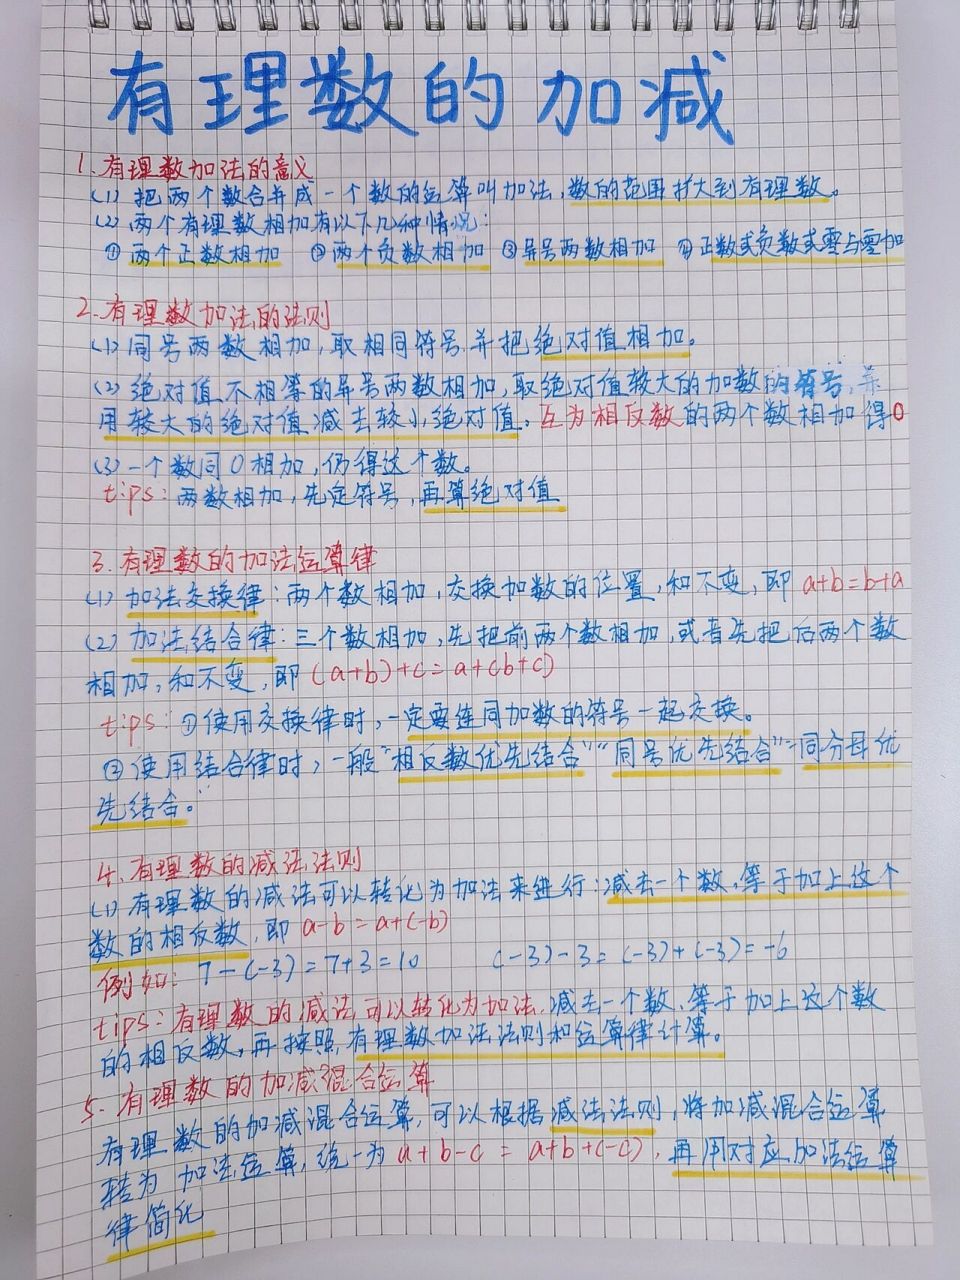 有理数的加减
1.有理数加法的意义
(1)把两个数合并成一个数的运算叫加法,数的范围扩大到有理数。
(2)两个有理数相加有以下几种情况:
①两个正数相加 ②两个负数相加 ③异号两数相加 ④正数或负数或零与零加
2.有理数加法的法则
(1)同号两数相加,取相同符号,并把绝对值相加。
(2)绝对值不相等的异号两数相加,取绝对值较大的加数的符号,并
用较大的绝对值减去较小绝对值。互为相反数的两个数相加得0
(3)一个数同0相加,仍得这个数。
tips:两数相加,先定符号,再算绝对值
3.有理数的加法运算律
(1)加法交换律:两个数相加,交换加数的位置,和不变,即 a+b=b+a
(2)加法结合律:三个数相加,先把前两个数相加,或者先把后两个数
相加,和不变,即(a+b)+c=a+(b+c)
tips:①使用交换律时,一定要连同加数的符号一起交换。
②使用结合律时,一般"相反数优先结合""同号优先结合""同分母优
先结合。"
4.有理数的减法法则
(1)有理数的减法可以转化为加法来进行:减去一个数,等于加上这个
数的相反数,即 a-b=a+(-b)
例如:7-(-3)=7+3=10 (-3)-3=(-3)+(-3)=-6
tips:有理数的减法可以转化为加法,减去一个数、等于加上这个数
的相反数,再按照有理数加法法则和运算律计算。
5.有理数的加减混合运算
有理数的加减混合运算,可以根据减法法则,将加减混合运算
转为加法运算,统一为a+b-c=a+b+(-c),再用对应加法运算
律简化